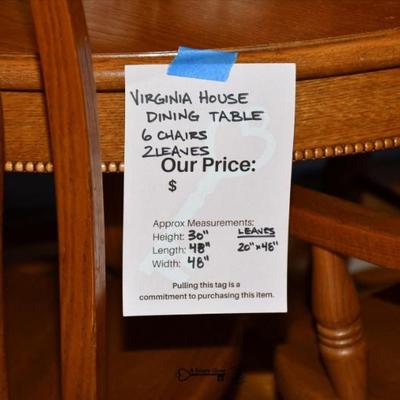 VIRGINIA HOUSE
DINING TABLE
6 CHAIRS
2 LEAVES
Our Price:
$
Approx Measurements:
Height: 30" LEAVES
Length: 48" 20" x 48"
Width: 48"
Pulling this tag is a
commitment to purchasing this item.